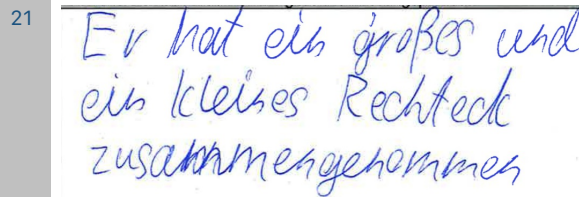 21
Er hat ein großes und
ein kleines Rechteck
zusammengenommen